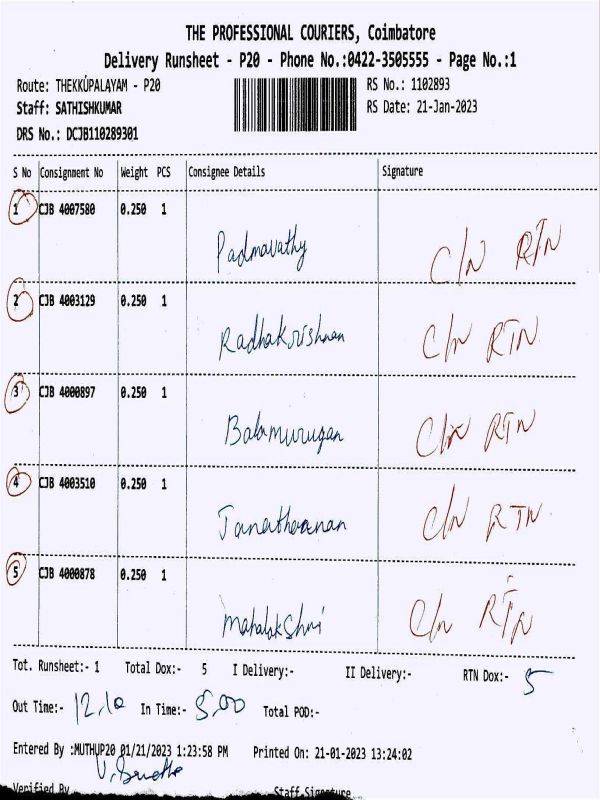 THE PROFESSIONAL COURIERS, Coimbatore
Delivery Runsheet - P20 - Phone No.:0422-3505555 - Page No.:1
Route: THEKKUPALAYAM - P20 RS No.: 1102893
Staff: SATHISHKUMAR RS Date: 21-Jan-2023
DRS No.: DCJB110289301
S No Consignment No Weight PCS Consignee Details Signature
1 CJB 4007580 0.250 1
Padmavathy C/N RTN
2 CJB 4003129 0.250 1
Radhakrishnan C/N RTN
3 CJB 4000897 0.250 1
Balamurugan C/N RTN
4 CJB 4003510 0.250 1
C/N RTN
5 CJB 4000878 0.250 1
Mahalakshmi C/N RTN
Tot. Runsheet:- 1 Total Dox:- 5 I Delivery:- II Delivery:- RTN Dox:- 5
Out Time:- 12.10 In Time:- 5.00 Total POD:-
Entered By :MUTHUP20 01/21/2023 1:23:58 PM Printed On: 21-01-2023 13:24:02
Verified By Staff Signature